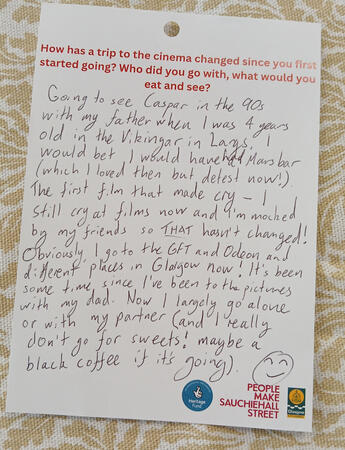 How has a trip to the cinema changed since you first
started going? Who did you go with, what would you
eat and see?
Going to see Caspar in the 90s
with my father when I was 4 years
old in the Vikingar in Largs. I
would bet I would have had Mars bar
(which I loved then but detest now!).
The first film that made cry – I
still cry at films now and I'm mocked
by my friends so THAT hasn't changed!
Obviously, I go to the GFT and Odeon and
different places in Glasgow now! It's been
some time, since I've been to the pictures
with my dad. Now I largely go alone
or with my partner (and I really
don't go for sweets! maybe a
black coffee if it's going).
Heritage
Fund
PEOPLE
MAKE
SAUCHIEHALL
STREET